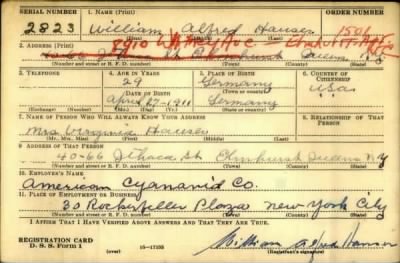 SERIAL NUMBER 1. NAME (Print) ORDER NUMBER
2823 William Alfred Hauser 1501
(First) (Middle) (Last)
2. ADDRESS (Print)
8910 Whitney Ave Elmhurst
40-66 Ithaca St Elmhurst Queens N Y
(Number and street or R. F. D. number) (Town) (County) (State)
3. TELEPHONE 4. AGE IN YEARS 5. PLACE OF BIRTH 6. COUNTRY OF CITIZENSHIP
29 Germany
DATE OF BIRTH (Town or county) U.S.A.
April-27-1911 Germany
(Exchange) (Number) (Mo.) (Day) (Yr.) (State or country)
7. NAME OF PERSON WHO WILL ALWAYS KNOW YOUR ADDRESS 8. RELATIONSHIP OF THAT PERSON
Mrs Virginia Hauser
(Mr., Mrs., Miss) (First) (Middle) (Last)
9. ADDRESS OF THAT PERSON
40-66 Ithaca St Elmhurst Queens N Y
(Number and street or R. F. D. number) (Town) (County) (State)
10. EMPLOYER'S NAME
American Cyanamid Co.
11. PLACE OF EMPLOYMENT OR BUSINESS
30 Rockefeller Plaza New York City
(Number and street or R. F. D. number) (Town) (County) (State)
I AFFIRM THAT I HAVE VERIFIED ABOVE ANSWERS AND THAT THEY ARE TRUE.
REGISTRATION CARD
D. S. S. Form 1 (over) 16-17105 William Alfred Hauser
(Registrant's signature)